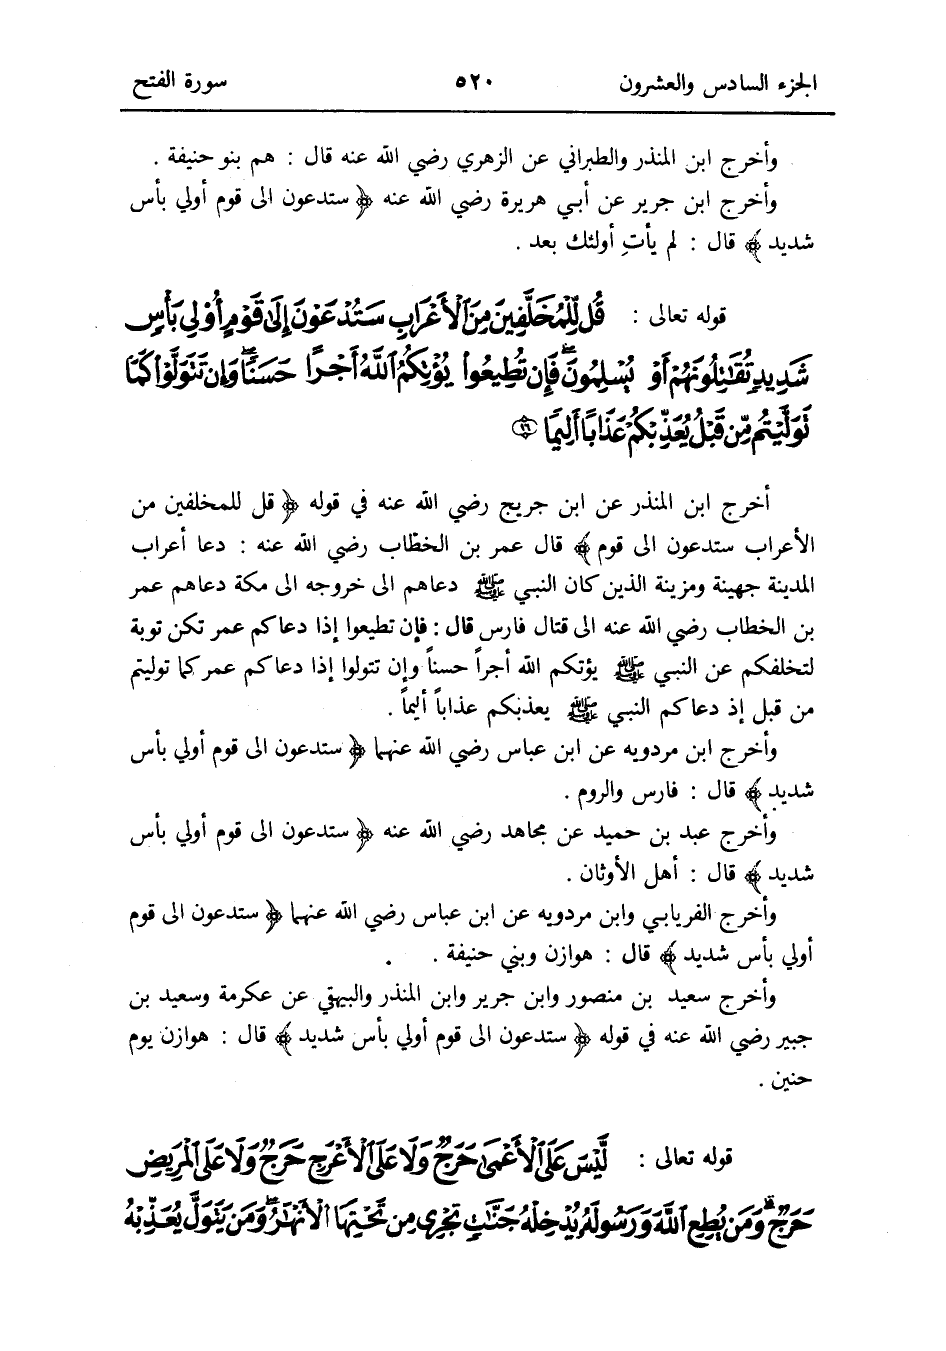 الجزء السادس والعشرون ٥٢٠ سورة الفتح
وأخرج ابن المنذر والطبراني عن الزهري رضي الله عنه قال : هم بنو حنيفة .
وأخرج ابن جرير عن أبي هريرة رضي الله عنه ﴿ ستدعون الى قوم أولي بأس
شديد ﴾ قال : لم يأتِ أولئك بعد .
قوله تعالى : قُل لِّلْمُخَلَّفِينَ مِنَ ٱلْأَعْرَابِ سَتُدْعَوْنَ إِلَىٰ قَوْمٍ أُوْلِي بَأْسٍ
شَدِيدٍ تُقَٰتِلُونَهُمْ أَوْ يُسْلِمُونَ ۖ فَإِن تُطِيعُوا۟ يُؤْتِكُمُ ٱللَّهُ أَجْرًا حَسَنًا ۖ وَإِن تَتَوَلَّوْا۟ كَمَا
تَوَلَّيْتُم مِّن قَبْلُ يُعَذِّبْكُمْ عَذَابًا أَلِيمًا ١٦
أخرج ابن المنذر عن ابن جريج رضي الله عنه في قوله ﴿ قل للمخلفين من
الأعراب ستدعون الى قوم ﴾ قال عمر بن الخطّاب رضي الله عنه : دعا أعراب
المدينة جهينة ومزينة الذين كان النبي ﷺ دعاهم الى خروجه الى مكة دعاهم عمر
بن الخطاب رضي الله عنه الى قتال فارس قال : فإن تطيعوا إذا دعاكم عمر تكن توبة
لتخلفكم عن النبي ﷺ يؤتكم الله أجراً حسناً وإن تتولوا إذا دعاكم عمر كما توليتم
من قبل إذ دعاكم النبي ﷺ يعذبكم عذاباً أليماً .
وأخرج ابن مردويه عن ابن عباس رضي الله عنهما ﴿ ستدعون الى قوم أولي بأس
شديد ﴾ قال : فارس والروم .
وأخرج عبد بن حميد عن مجاهد رضي الله عنه ﴿ ستدعون الى قوم أولي بأس
شديد ﴾ قال : أهل الأوثان .
وأخرج الفريابي وابن مردويه عن ابن عباس رضي الله عنهما ﴿ ستدعون الى قوم
أولي بأس شديد ﴾ قال : هوازن وبني حنيفة .
وأخرج سعيد بن منصور وابن جرير وابن المنذر والبيهقي عن عكرمة وسعيد بن
جبير رضي الله عنه في قوله ﴿ ستدعون الى قوم أولي بأس شديد ﴾ قال : هوازن يوم
حنين .
قوله تعالى : لَّيْسَ عَلَى ٱلْأَعْمَىٰ حَرَجٌ وَلَا عَلَى ٱلْأَعْرَجِ حَرَجٌ وَلَا عَلَى ٱلْمَرِيضِ
حَرَجٌ ۗ وَمَن يُطِعِ ٱللَّهَ وَرَسُولَهُۥ يُدْخِلْهُ جَنَّٰتٍ تَجْرِي مِن تَحْتِهَا ٱلْأَنْهَٰرُ ۖ وَمَن يَتَوَلَّ يُعَذِّبْهُ